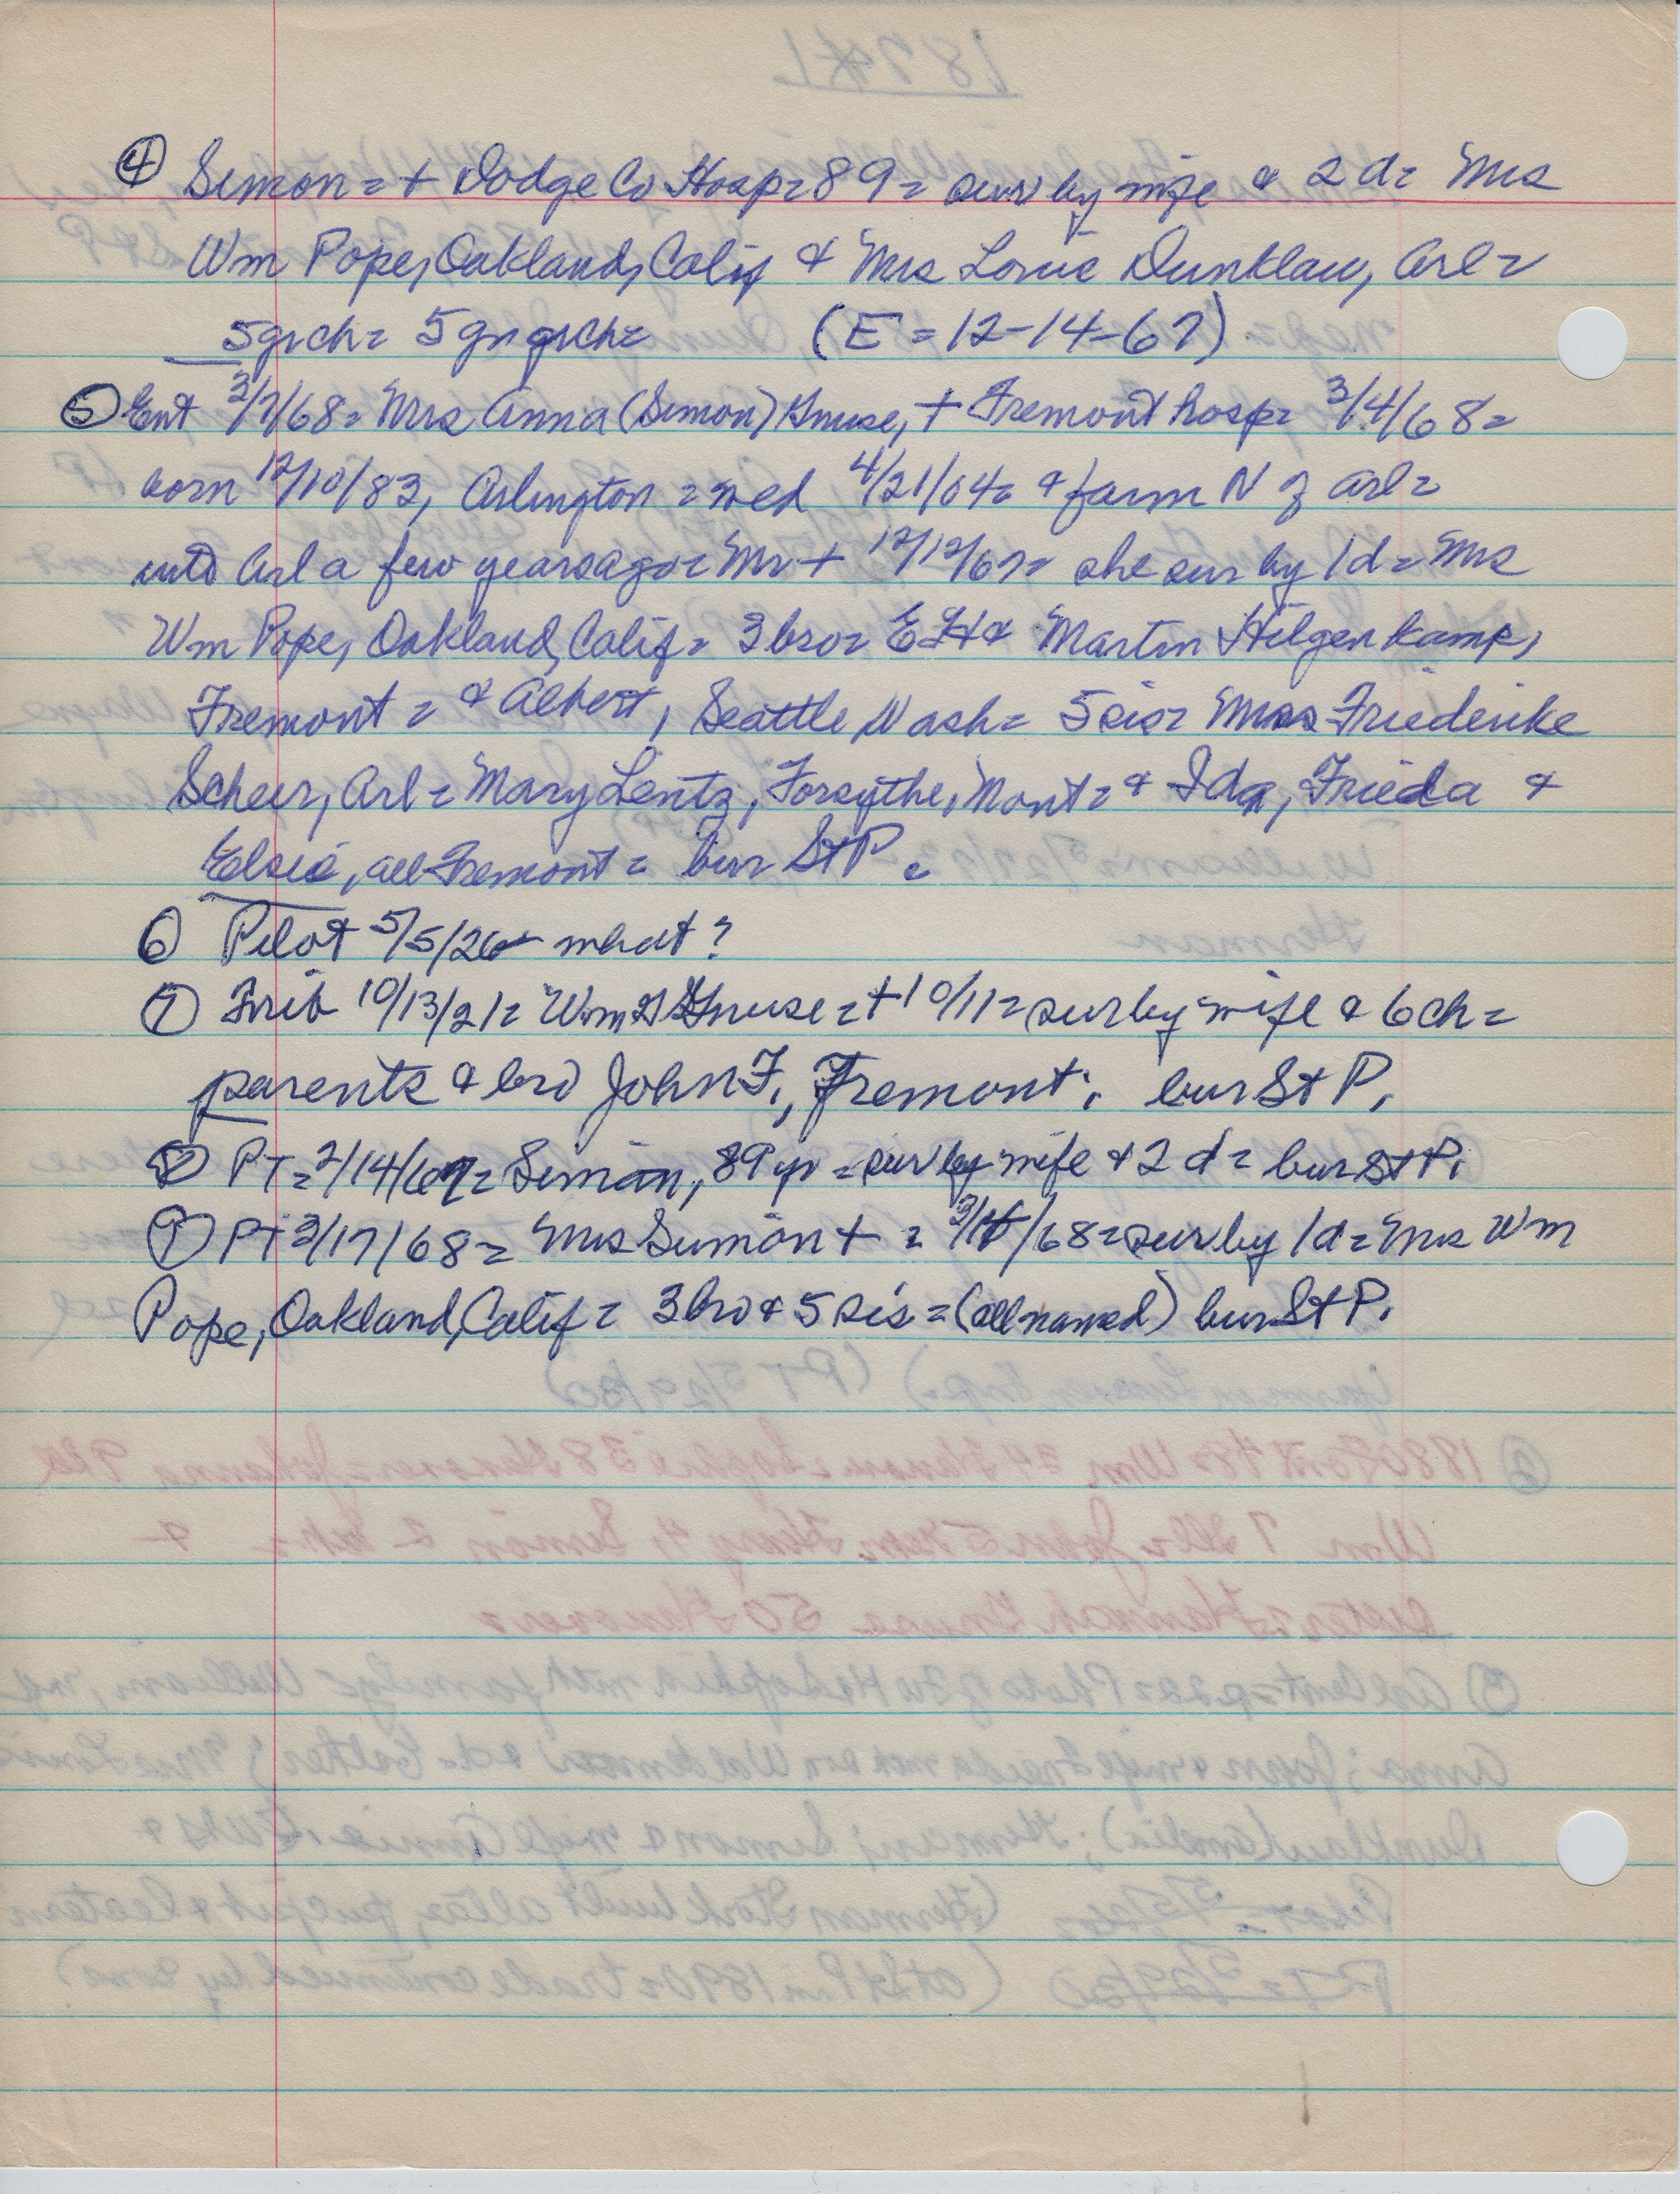 ④ Simon = + Dodge Co Hosp = 89 = sur by wife & 2 d = Mrs
Wm Pope, Oakland, Calif & Mrs Louie Dunklau, Arl =
5 grch = 5 gr grch = (E = 12-14-67)
⑤ Ent 3/7/68 = Mrs Anna (Simon) Gnuse, + Fremont hosp = 3/4/68 =
born 12/10/83, Arlington = wed 4/21/04 = & farm N of Arl =
into Arl a few years ago = Mr + 12/12/67 = she sur by 1 d = Mrs
Wm Pope, Oakland, Calif = 3 bro = E H & Martin Hilgenkamp,
Fremont = & Albert, Seattle, Wash = 5 sis = Mrs Friederike
Scheer, Arl = Mary Lentz, Forsythe, Mont = & Ida, Frieda &
Elsie, all Fremont = bur St P.
⑥ Pilot 5/5/26 what?
⑦ Trib 10/13/21 = Wm Gnuse = + 10/11 = sur by wife & 6 ch =
parents & bro John F., Fremont. bur St P.
⑧ PT = 2/14/67 = Simon, 89 yr = sur by wife & 2 d = bur St P.
⑨ PT 3/17/68 = Mrs Simon + = /68 = sur by 1 d = Mrs Wm
Pope, Oakland, Calif = 3 bro & 5 sis = (all named) bur St P.